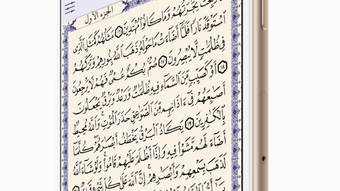 الجزء الأول
رَبِحَت تِّجَٰرَتُهُمْ وَمَا كَانُوا۟ مُهْتَدِينَ ١٦ مَثَلُهُمْ كَمَثَلِ ٱلَّذِى
ٱسْتَوْقَدَ نَارًا فَلَمَّآ أَضَآءَتْ مَا حَوْلَهُۥ ذَهَبَ ٱللَّهُ بِنُورِهِمْ وَتَرَكَهُمْ
فِى ظُلُمَٰتٍ لَّا يُبْصِرُونَ ١٧ صُمٌّۢ بُكْمٌ عُمْىٌ فَهُمْ لَا يَرْجِعُونَ
١٨ أَوْ كَصَيِّبٍ مِّنَ ٱلسَّمَآءِ فِيهِ ظُلُمَٰتٌ وَرَعْدٌ وَبَرْقٌ يَجْعَلُونَ
أَصَٰبِعَهُمْ فِىٓ ءَاذَانِهِم مِّنَ ٱلصَّوَٰعِقِ حَذَرَ ٱلْمَوْتِ وَٱللَّهُ مُحِيطٌۢ
بِٱلْكَٰفِرِينَ ١٩ يَكَادُ ٱلْبَرْقُ يَخْطَفُ أَبْصَٰرَهُمْ كُلَّمَآ
أَضَآءَ لَهُم مَّشَوْا۟ فِيهِ وَإِذَآ أَظْلَمَ عَلَيْهِمْ قَامُوا۟ وَلَوْ شَآءَ ٱللَّهُ
لَذَهَبَ بِسَمْعِهِمْ وَأَبْصَٰرِهِمْ إِنَّ ٱللَّهَ عَلَىٰ كُلِّ شَىْءٍ قَدِيرٌ ٢٠